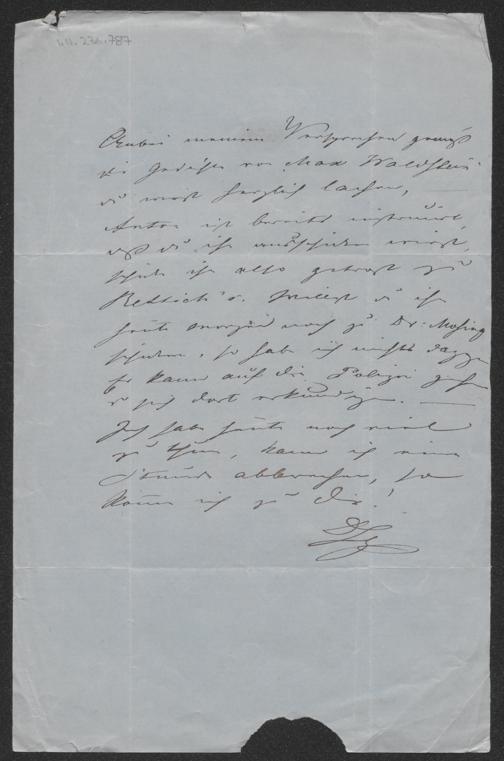 I.N. 276.787
Anbei meinem Versprechen gemäß
die Gedichte von Max Waldstein.
du wirst herzlich lachen,
Anton ist bereits instruirt,
daß du ihn ausschicken wirst,
schick ihn also getrost zu
Rettich's. Willst du ihn
heute morgen noch zu Dr. Mosing
schicken, so hab ich nichts dagegen
Er kann auf die Polizei gehen
u sich dort erkundigen.
Ich habe heute noch viel
zu thun, kann ich eine
Stunde abbrechen, so
komm ich zu dir!